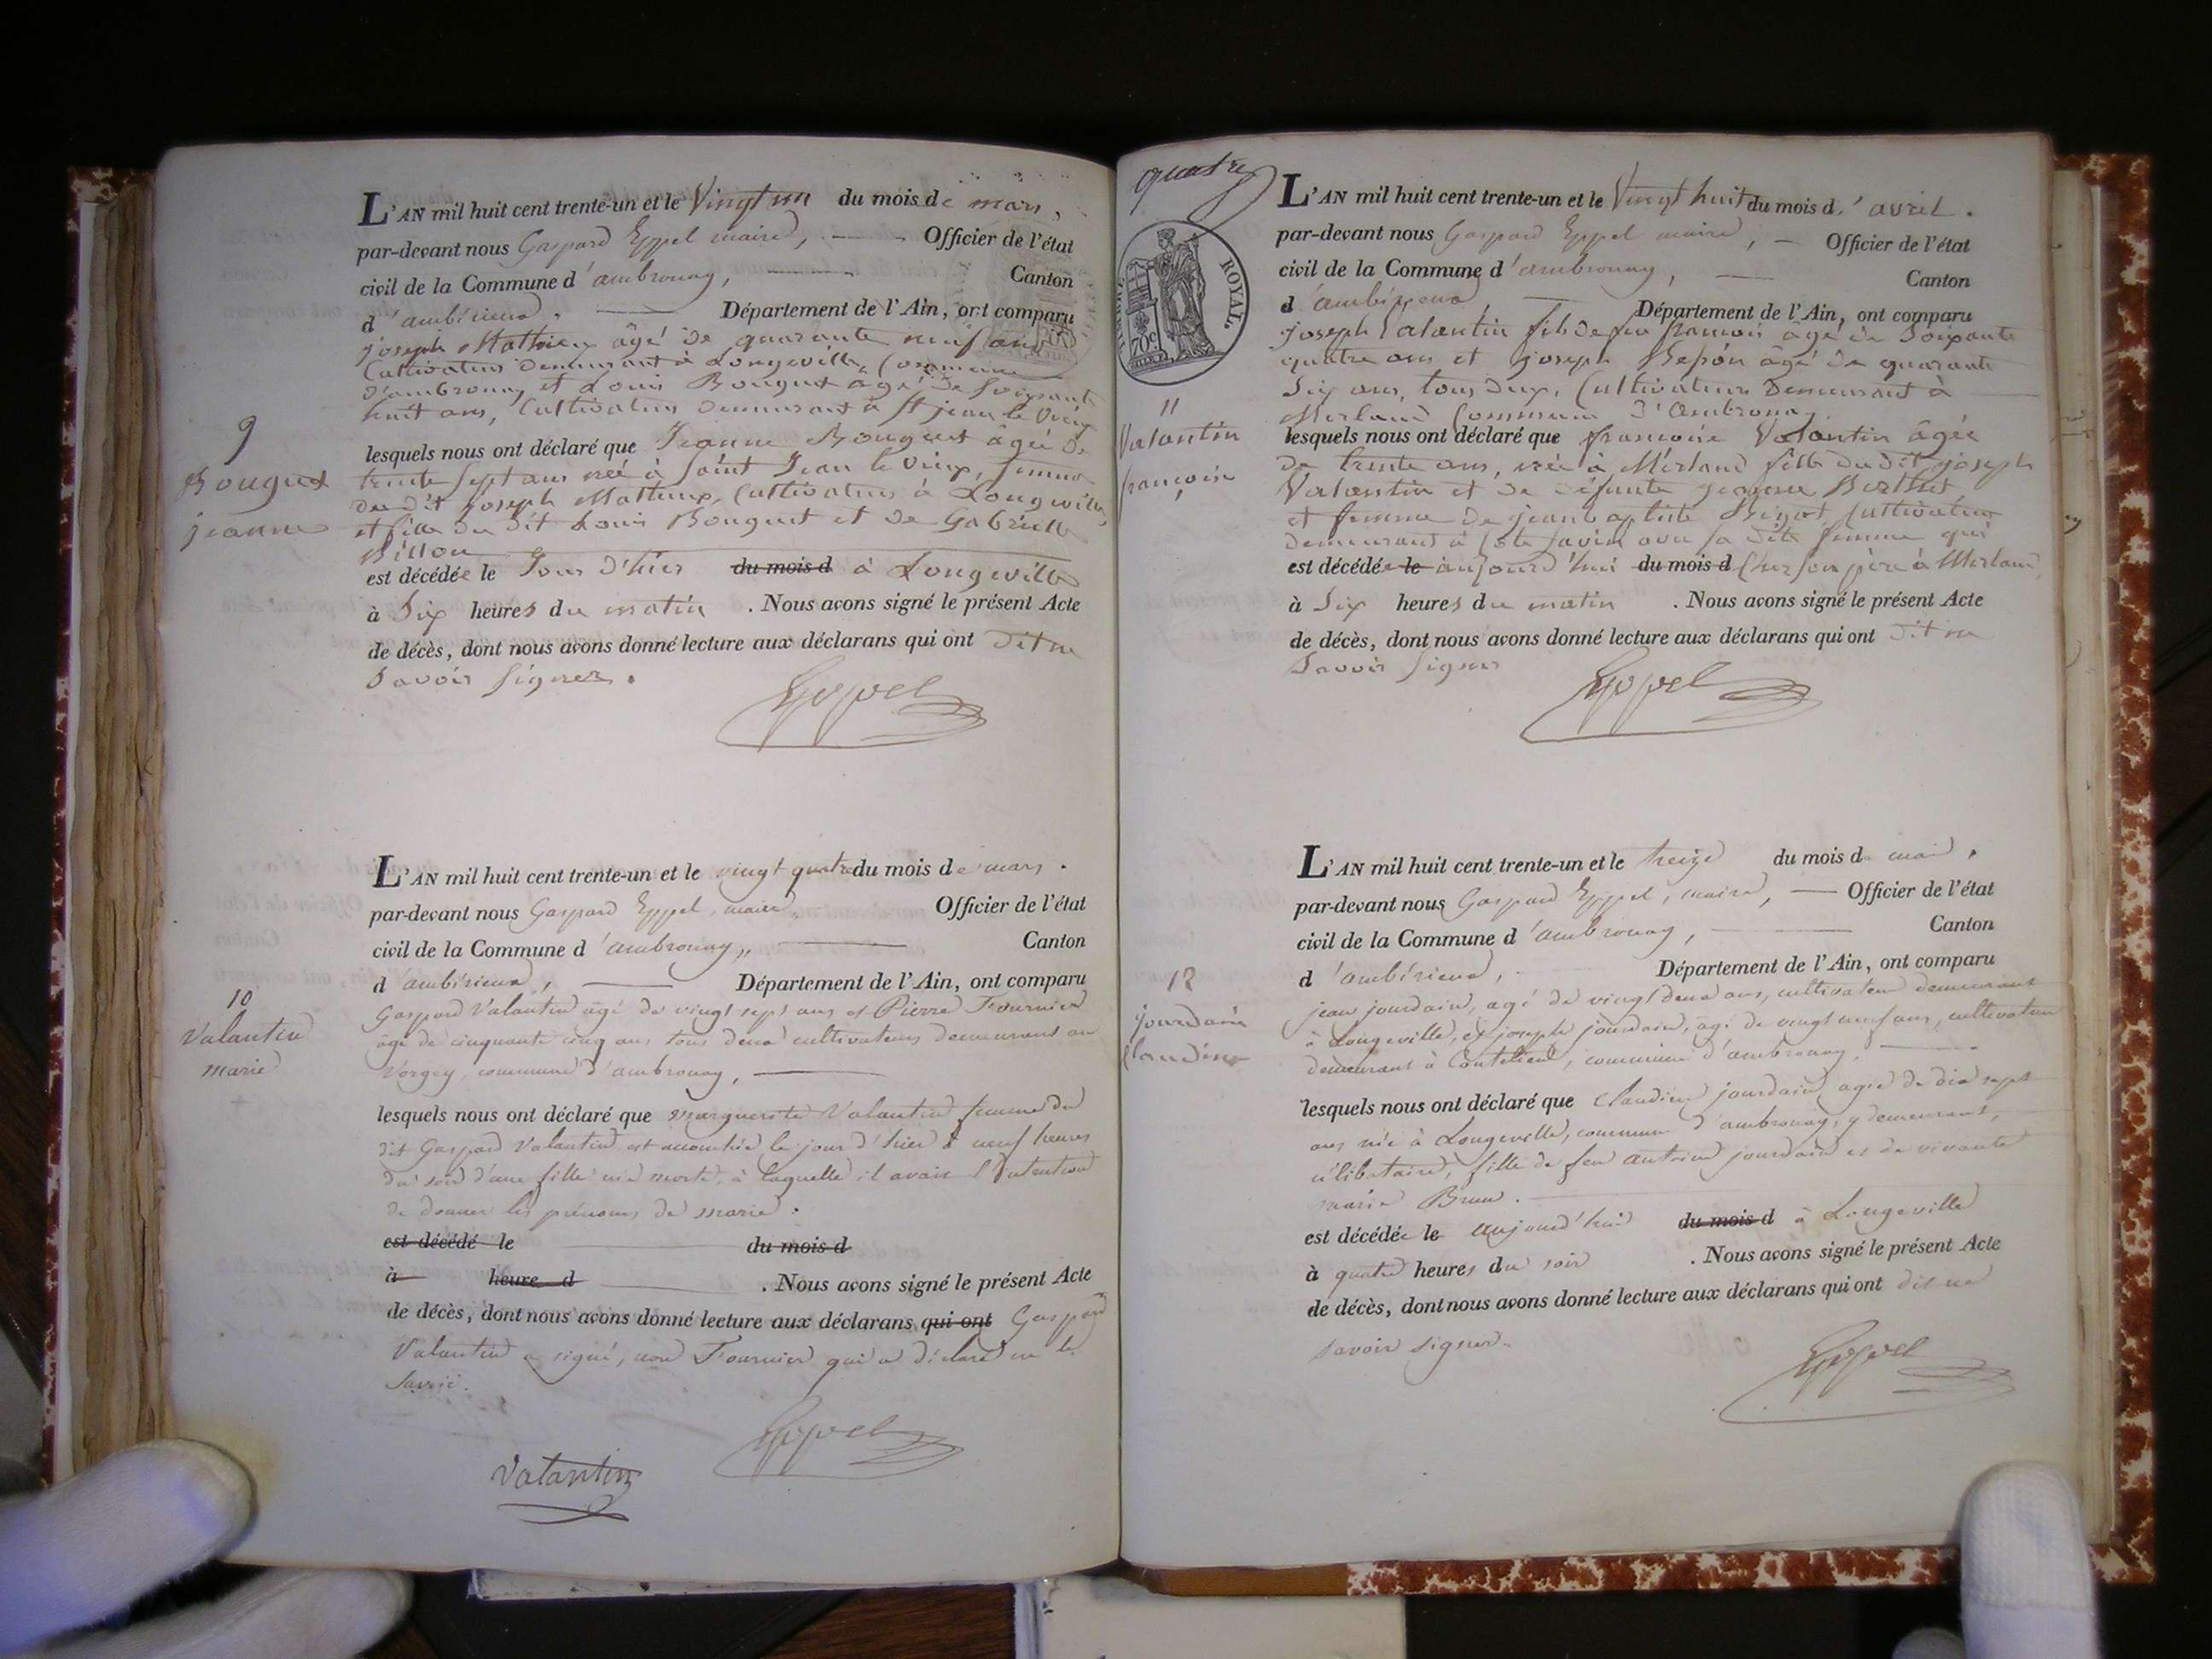 L'AN mil huit cent trente-un et le Vingt un du mois de mars,
par-devant nous Gaspard Eppel maire, Officier de l'état
civil de la Commune d'ambronay, Canton
d'ambérieux, Département de l'Ain, ont comparu
joseph Mathieux âgé de quarante neuf ans
Cultivateur Demeurant à Longeville, Commune
D'ambronay et Louis Bouguet âgé de soixante
huit ans, Cultivateur demeurant à St jean le Vieux
9
Bouguet
jeanne
lesquels nous ont déclaré que Jeanne Bouguet âgée de
trente sept ans née à Saint Jean le Vieux, femme
du dit joseph Mathieux, Cultivateur à Longeville,
et fille du dit Louis Bouguet et de Gabrielle
Billon
est décédée le Jour d'hier du mois d à Longeville
à Six heures du matin . Nous avons signé le présent Acte
de décès, dont nous avons donné lecture aux déclarans qui ont Dit ne
Savoir signer.
Eppel
L'AN mil huit cent trente-un et le vingt quatre du mois de mars.
par-devant nous Gaspard Eppel, maire, Officier de l'état
civil de la Commune d'ambronay, Canton
d'ambérieux, Département de l'Ain, ont comparu
10
Valantin
marie
Gaspard Valantin âgé de vingt sept ans et Pierre Fournier
âgé de cinquante cinq ans tous deux cultivateurs demeurant au
Vorgey, commune d'ambronay,
lesquels nous ont déclaré que marguerite Valantin femme du
dit Gaspard Valantin est accouchée le jour d'hier à neuf heures
du soir d'une fille née morte, à laquelle il avait l'intention
de donner les prénoms de marie.
est décédé le du mois d
à heure d . Nous avons signé le présent Acte
de décès, dont nous avons donné lecture aux déclarans qui ont Gaspard
Valantin a signé, non Fournier qui a déclaré ne le
savoir.
Eppel
Valantin
quatre
ROYAL.
70c
L'AN mil huit cent trente-un et le Vingt huit du mois d'avril.
par-devant nous Gaspard Eppel maire, Officier de l'état
civil de la Commune d'ambronay, Canton
d'ambérieux, Département de l'Ain, ont comparu
joseph Valantin fils de feu francois âgé de Soixante
quatre ans et joseph âgé de quarante
Six ans, tous deux, Cultivateurs Demeurant à
Merland Commune d'Ambronay.
11
Valantin
françoise
lesquels nous ont déclaré que françoise Valantin âgée
de trente ans, née à Merland fille du dit joseph
Valantin et de défunte jeanne Berthet
et femme de jean baptiste Cultivateur
demeurant à avec sa dite femme qui
est décédée le aujourd'hui du mois d Chez son père à Merland
à Six heures du matin . Nous avons signé le présent Acte
de décès, dont nous avons donné lecture aux déclarans qui ont Dit ne
Savoir signer
Eppel
L'AN mil huit cent trente-un et le treize du mois de mai,
par-devant nous Gaspard Eppel, maire, Officier de l'état
civil de la Commune d'ambronay, Canton
d'ambérieux, Département de l'Ain, ont comparu
12
jourdain
Claudine
jean jourdain, âgé de vingt deux ans, cultivateur demeurant
à Longeville, et joseph jourdain, âgé de vingt neuf ans, cultivateur
demeurant à commune d'ambronay,
lesquels nous ont déclaré que Claudine jourdain agée de dix sept
ans née à Longeville, commune d'ambronay, y demeurant,
célibataire, fille de feu antoine jourdain et de vivante
marie Brun.
est décédée le aujourd'hui du mois d à Longeville
à quatre heures du soir . Nous avons signé le présent Acte
de décès, dont nous avons donné lecture aux déclarans qui ont dit ne
savoir signer.
Eppel